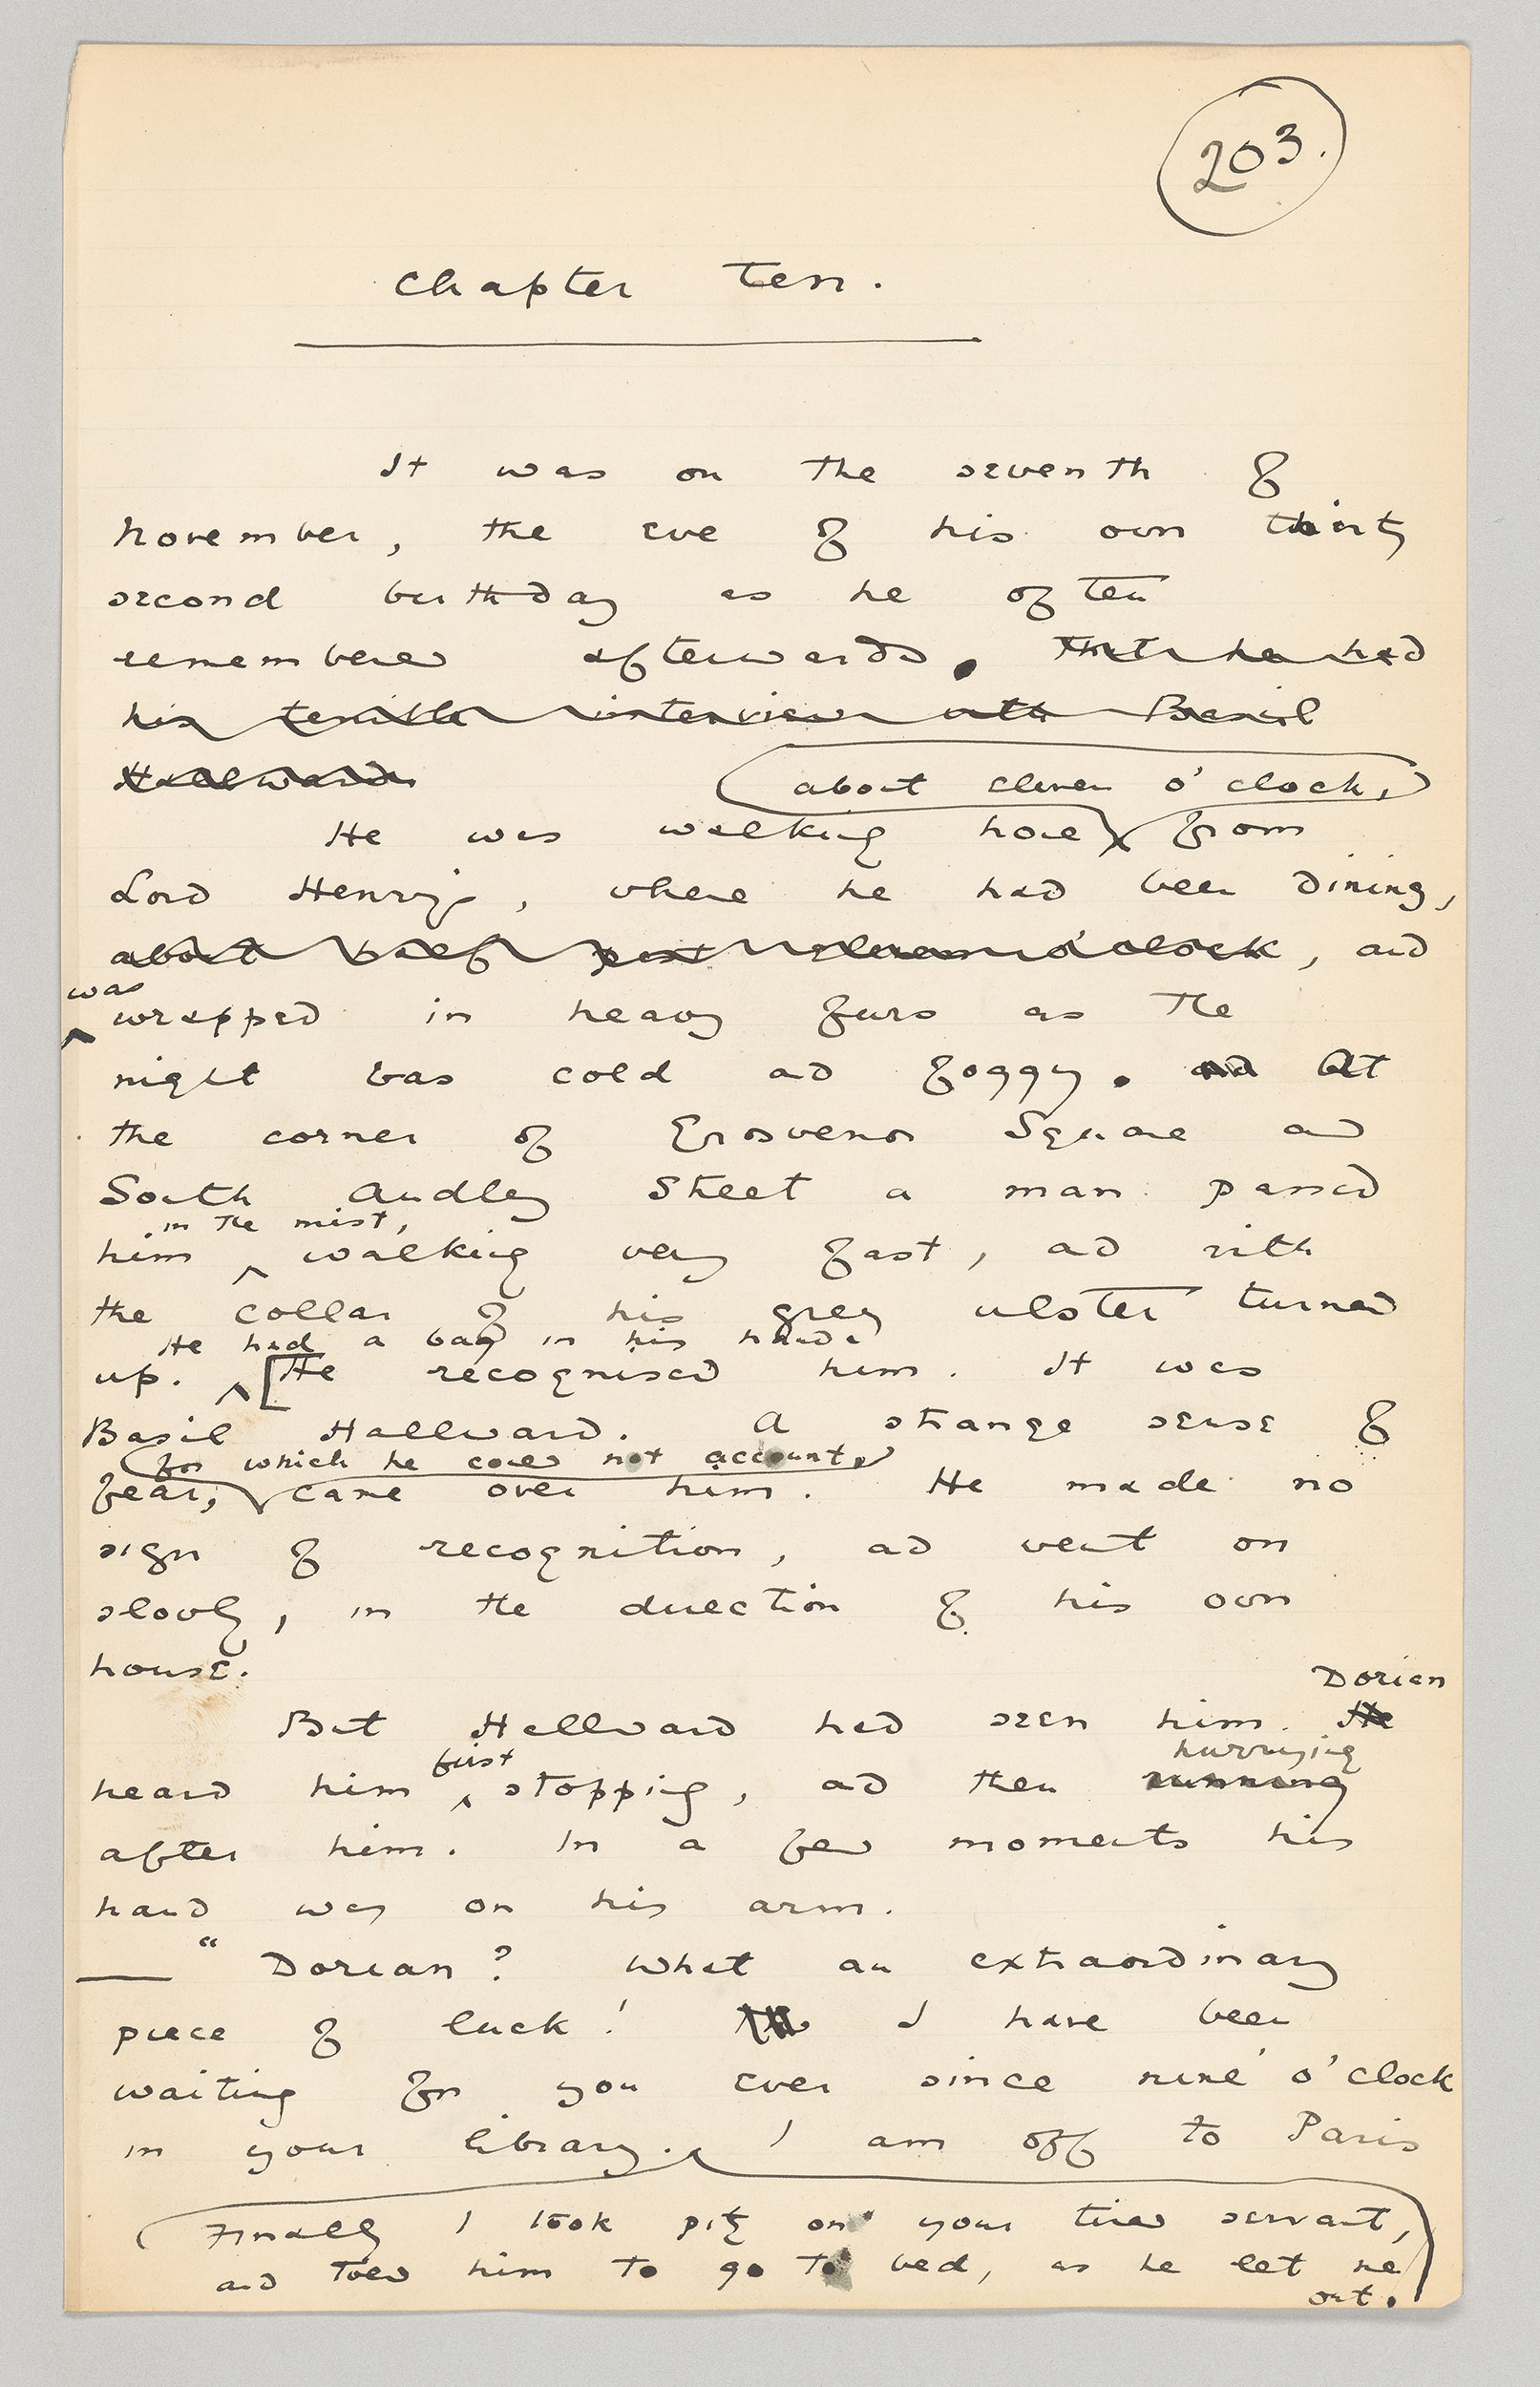 203.
Chapter Ten.
It was on the seventh of
November, the eve of his own thirty
second birthday as he often
remembered afterwards. that he had
his terrible interview with Basil
Hallward.
about eleven o'clock,
He was walking home from
Lord Henry's, where he had been dining,
about half past eleven o'clock, and
was
wrapped in heavy furs as the
night was cold and foggy. and At
the corner of Grosvenor Square and
South Audley Street a man passed
in the mist,
him walking very fast, and with
the collar of his grey ulster turned
He had a bag in his hand.
up. [He recognised him. It was
Basil Hallward. A strange sense of
for which he could not account,
fear, came over him. He made no
sign of recognition, and went on
slowly, in the direction of his own
house.
Dorian
But Hallward had seen him. He
first hurrying
heard him stopping, and then running
after him. In a few moments his
hand was on his arm.
— "Dorian? What an extraordinary
piece of luck! I have been
waiting for you ever since nine o'clock
in your library. I am off to Paris
Finally I took pity on your tired servant,
and told him to go to bed, as he let me
out.